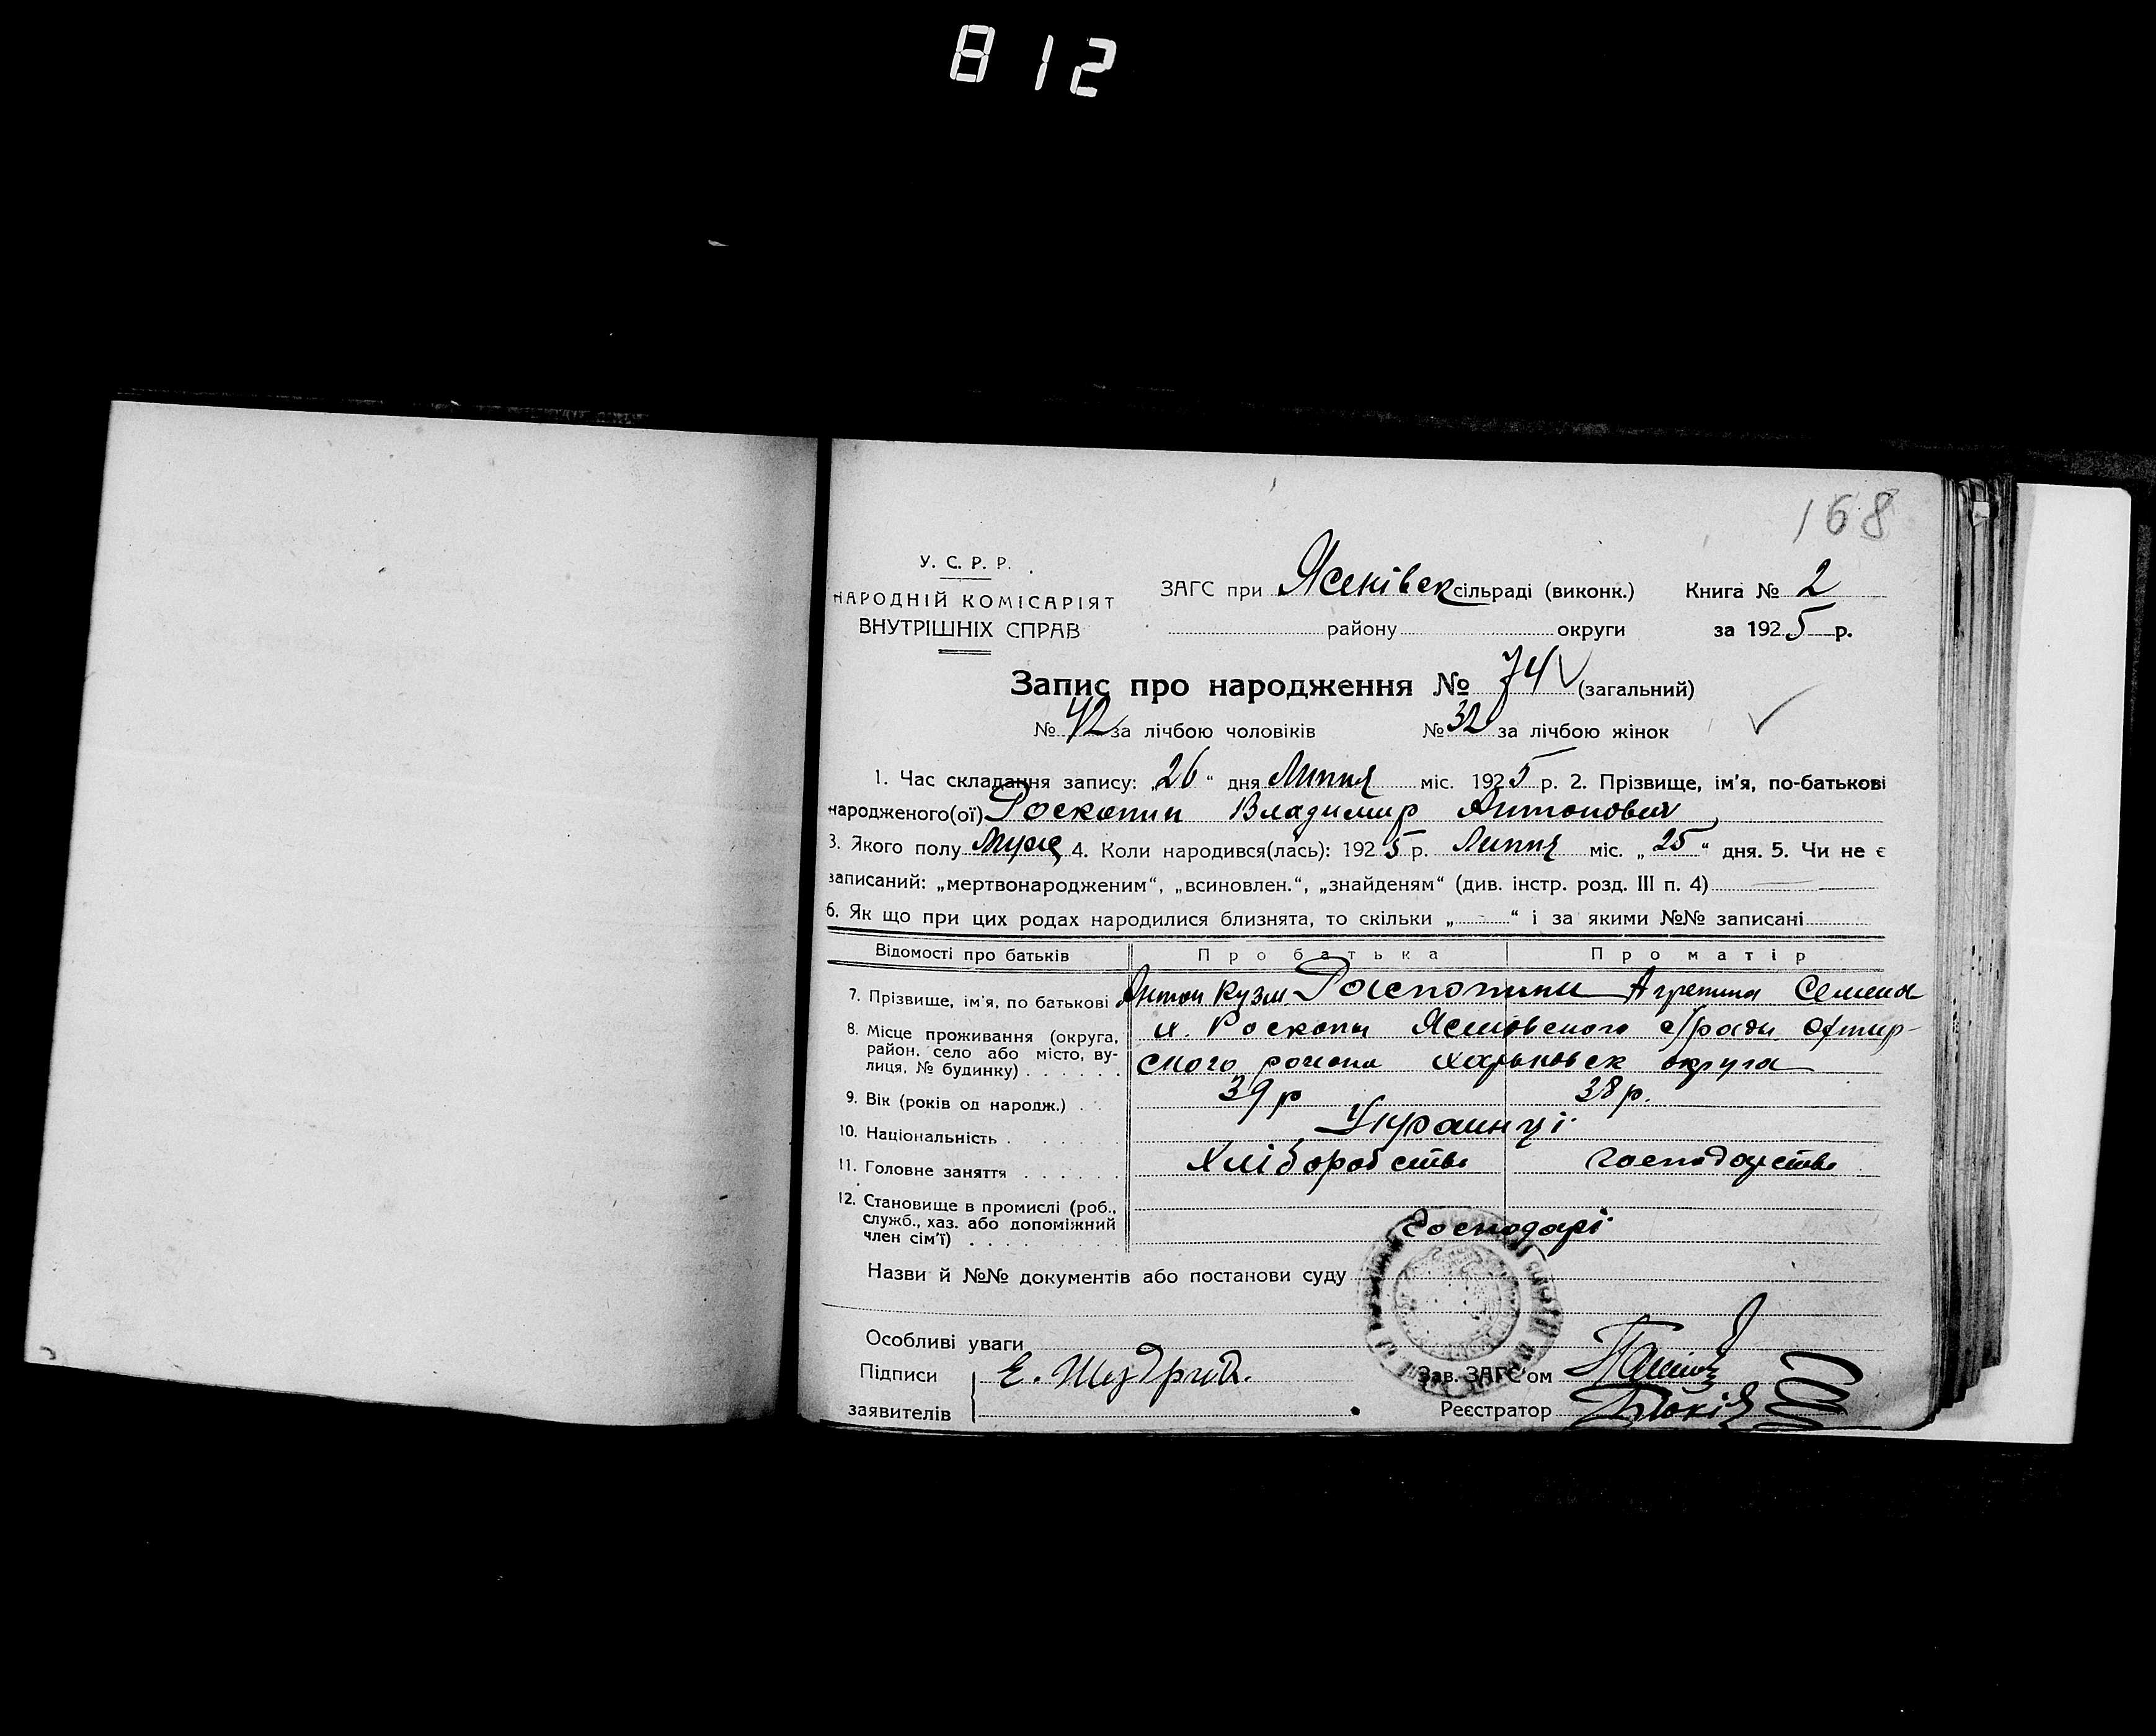 812
168
У. С. Р. Р.
НАРОДНІЙ КОМІСАРІЯТ
ВНУТРІШНІХ СПРАВ
ЗАГС при Ясенівск сільраді (виконк.) Книга № 2
району округи за 1925 р.
Запис про народження № 74 (загальний)
№ 42 за лічбою чоловіків № 32 за лічбою жінок
1. Час складання запису: „26“ дня Липня міс. 1925 р. 2. Прізвище, ім'я, по-батькові
народженого(ої) Роскопин Владимир Антонович
3. Якого полу Муж 4. Коли народився(лась): 1925 р. Липня міс. „25“ дня. 5. Чи не є
записаний: „мертвонародженим“, „всиновлен.“, „знайденям“ (див. інстр. розд. III п. 4)
6. Як що при цих родах народилися близнята, то скільки „ “ і за якими №№ записані
Відомості про батьків Про батька Про матір
7. Прізвище, ім'я, по батькові Антон Кузм. Агрепина Семено
8. Місце проживання (округа, район, село або місто, вулиця, № будинку) х. Роскопы с/ради Охтирского района харьковск округа
9. Вік (років од народж.) 39 р 38 р.
10. Національність Украинці
11. Головне заняття Хліборобство господарство
12. Становище в промислі (роб., служб., хаз. або допоміжний член сім'ї) Господарі
Назви й №№ документів або постанови суду
Особливі уваги
Підписи Е.
заявителів
Зав. ЗАГС'ом
Реєстратор